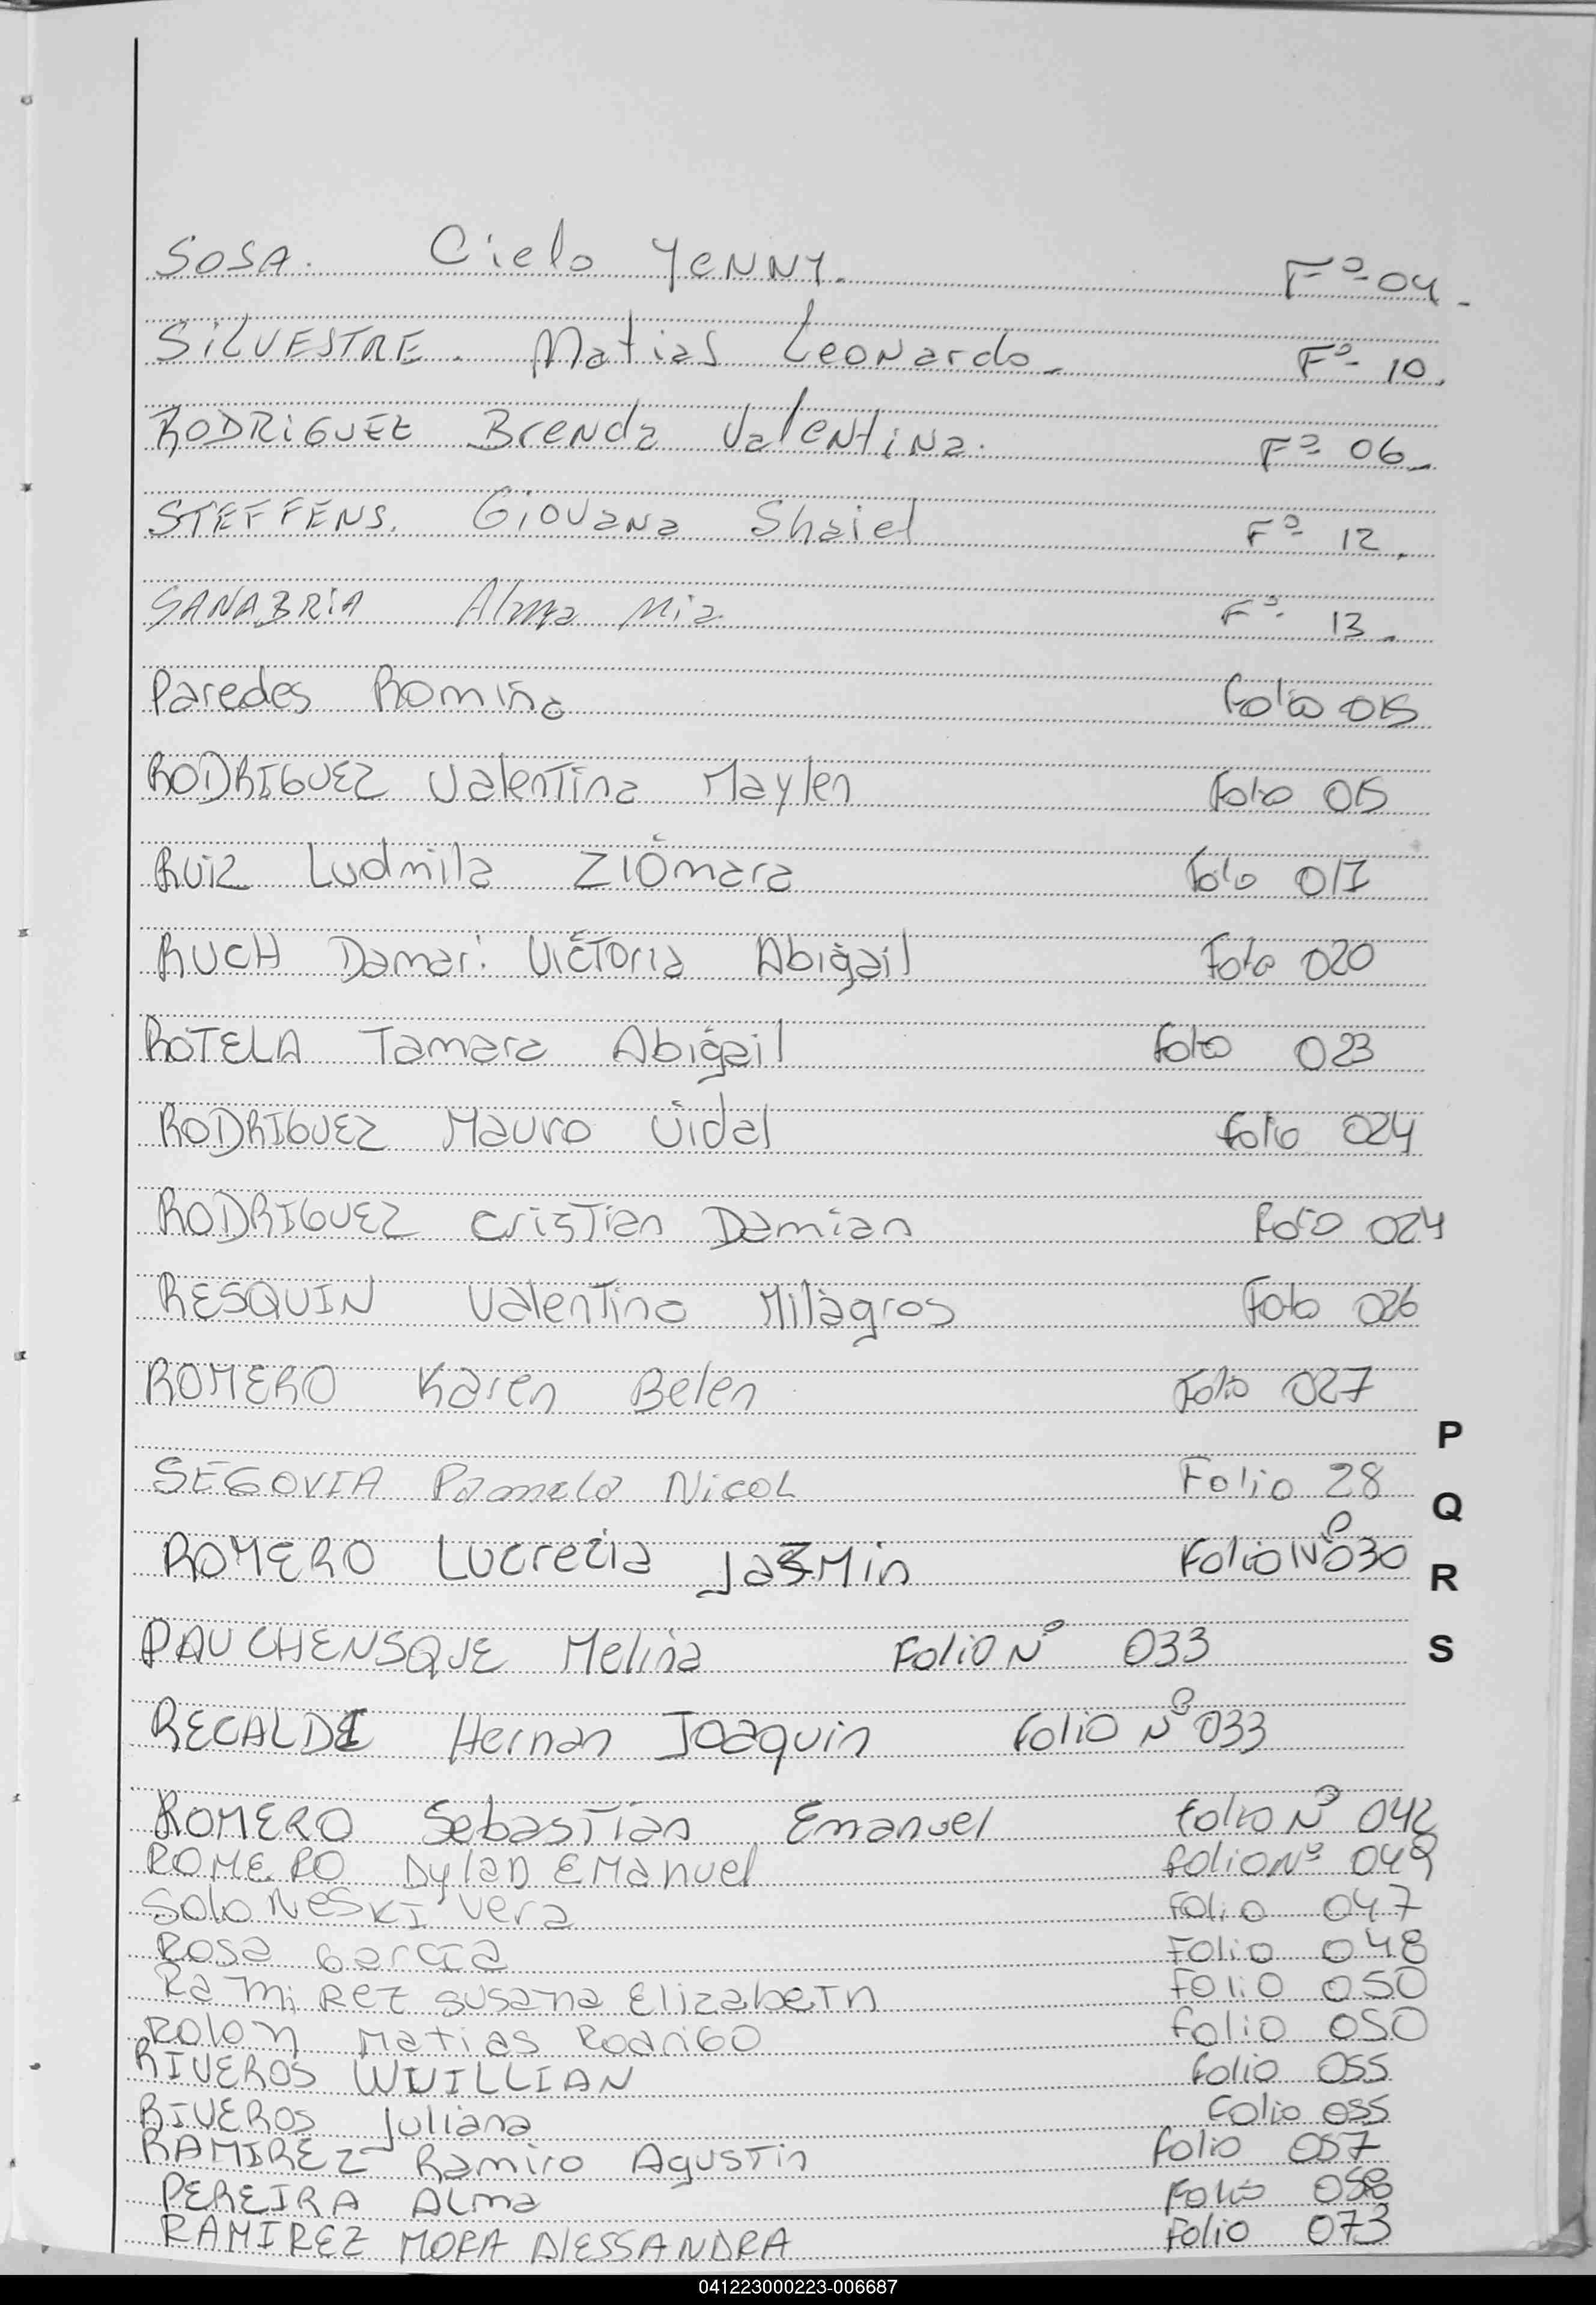 SOSA. Cielo YENNY. Fº 04.
SILVESTRE. Matias Leonardo. Fº 10.
RODRIGUEZ Brenda Valentina. Fº 06.
STEFFENS. Giovana Shaiel Fº 12.
SANABRIA Alma Mia Fº 13.
Paredes Romina folio 015
RODRIGUEZ Valentina Maylen folio 015
RUIZ Ludmila ZIOmara folo 017
RUCH Damari Victoria Abigail Folo 020
ROTELA Tamara Abigail folio 023
RODRIGUEZ Mauro Vidal folio 024
RODRIGUEZ Cristian Damian folio 024
RESQUIN Valentina Milagros Folo 026
ROMERO Karen Belen Folio 027
P
SEGOVIA Pamela Nicol Folio 28
Q
ROMERO Lucrecia Jazmin Folio Nº 030
R
PAUCHENSQUE Melina Folio Nº 033
S
RECALDE Hernan Joaquin folio Nº 033
ROMERO Sebastian Emanuel folio Nº 042
ROMERO Dylan EManuel folio Nº 049
SoloNeSKI Vera Folio 047
Rosa Garcia Folio 048
RamiRez Susana Elizabeth Folio 050
Rolon Matias Rodrigo folio 050
RIVEROS WUILLIAN folio 055
RIVEROS Juliana folio 055
RAMIREZ Ramiro Agustin folio 057
PEREIRA Alma Folio 058
RAMIREZ MORA ALESSANDRA Folio 073
041223000223-006687